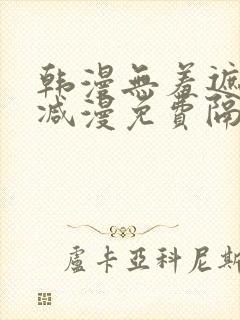 韩漫無羞遮
减漫免費隔
盧卡亞科尼斯